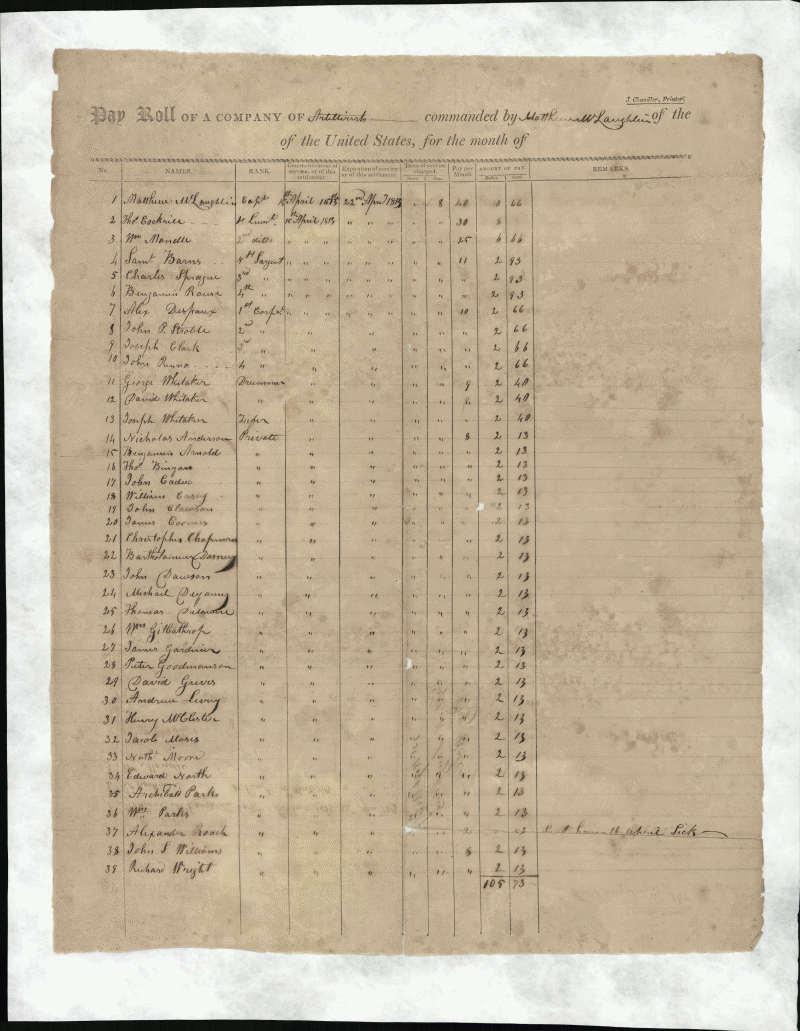 J Chandler, Printer.
Pay Roll OF A COMPANY OF Artillerists commanded by Matthew McLaughlin of the
of the United States, for the month of
No. NAMES. RANK. Commencement of service, or of this settlement. Expiration of service or of this settlement. Term of service charged. Pay per Month AMOUNT OF PAY. REMARKS.
1 Matthew McLaughlin Capt 15th April 1813 22nd April 1813 " 8 40 10 66
2 Thos Cockrier 1st Lieut. 15th April 1813 " " " " " " 30 8
3 Wm Mondle 2nd ditto " " " " " " " " 25 6 66
4 Saml Barns 1st Sargent " " " " " " " " 11 2 93
5 Charles Sprague 3rd " " " " " " " " " " " 2 93
6 Benjamin Rouse 4th " " " " " " " " " " " 2 93
7 Alex Despaux 1st Corpl. " " " " " " " " 10 2 66
8 John P. Stroble 2nd " " " " " " 2 66
9 Joseph Clark 3rd " " " " " " 2 66
10 John Renno 4 " " " " " " 2 66
11 George Whitaker Drummer " " " " 9 2 40
12 David Whitaker " " " " " " 2 40
13 Joseph Whitaker Fifer " " " " " 2 40
14 Nicholas Anderson Private " " " " 8 2 13
15 Benjamin Arnold " " " " " " 2 13
16 Thos Binyon " " " " " " 2 13
17 John Cadue " " " " " " 2 13
18 William Casey " " " " " " 2 13
19 John Clawson " " " " " 2 13
20 James Coomes " " " " " " 2 13
21 Christopher Chapman " " " " " " 2 13
22 Bartholomew Dorsey " " " " " " 2 13
23 John Dawson " " " " " " 2 13
24 Michael Deyoung " " " " " " 2 13
25 Thomas Delawter " " " " " " 2 13
26 Wm Gillbathrop " " " " " " 2 13
27 James Gardiner " " " " " " 2 13
28 Peter Goodmanson " " " " " " 2 13
29 David Greves " " " " " " 2 13
30 Andrew Levry " " " " " " 2 13
31 Henry McClester " " " " " " 2 13
32 Jacob Moses " " " " " " 2 13
33 Nathl Moore " " " " " " 2 13
34 Edward North " " " " " " 2 13
35 Archibald Parks " " " " " " 2 13
36 Wm Parks " " " " " " 2 13
37 Alexander Roach " " " " " home 16 April Sick
38 John S Williams " " " " " 8 2 13
39 Richard Wright " " " " " " 2 13
105 73